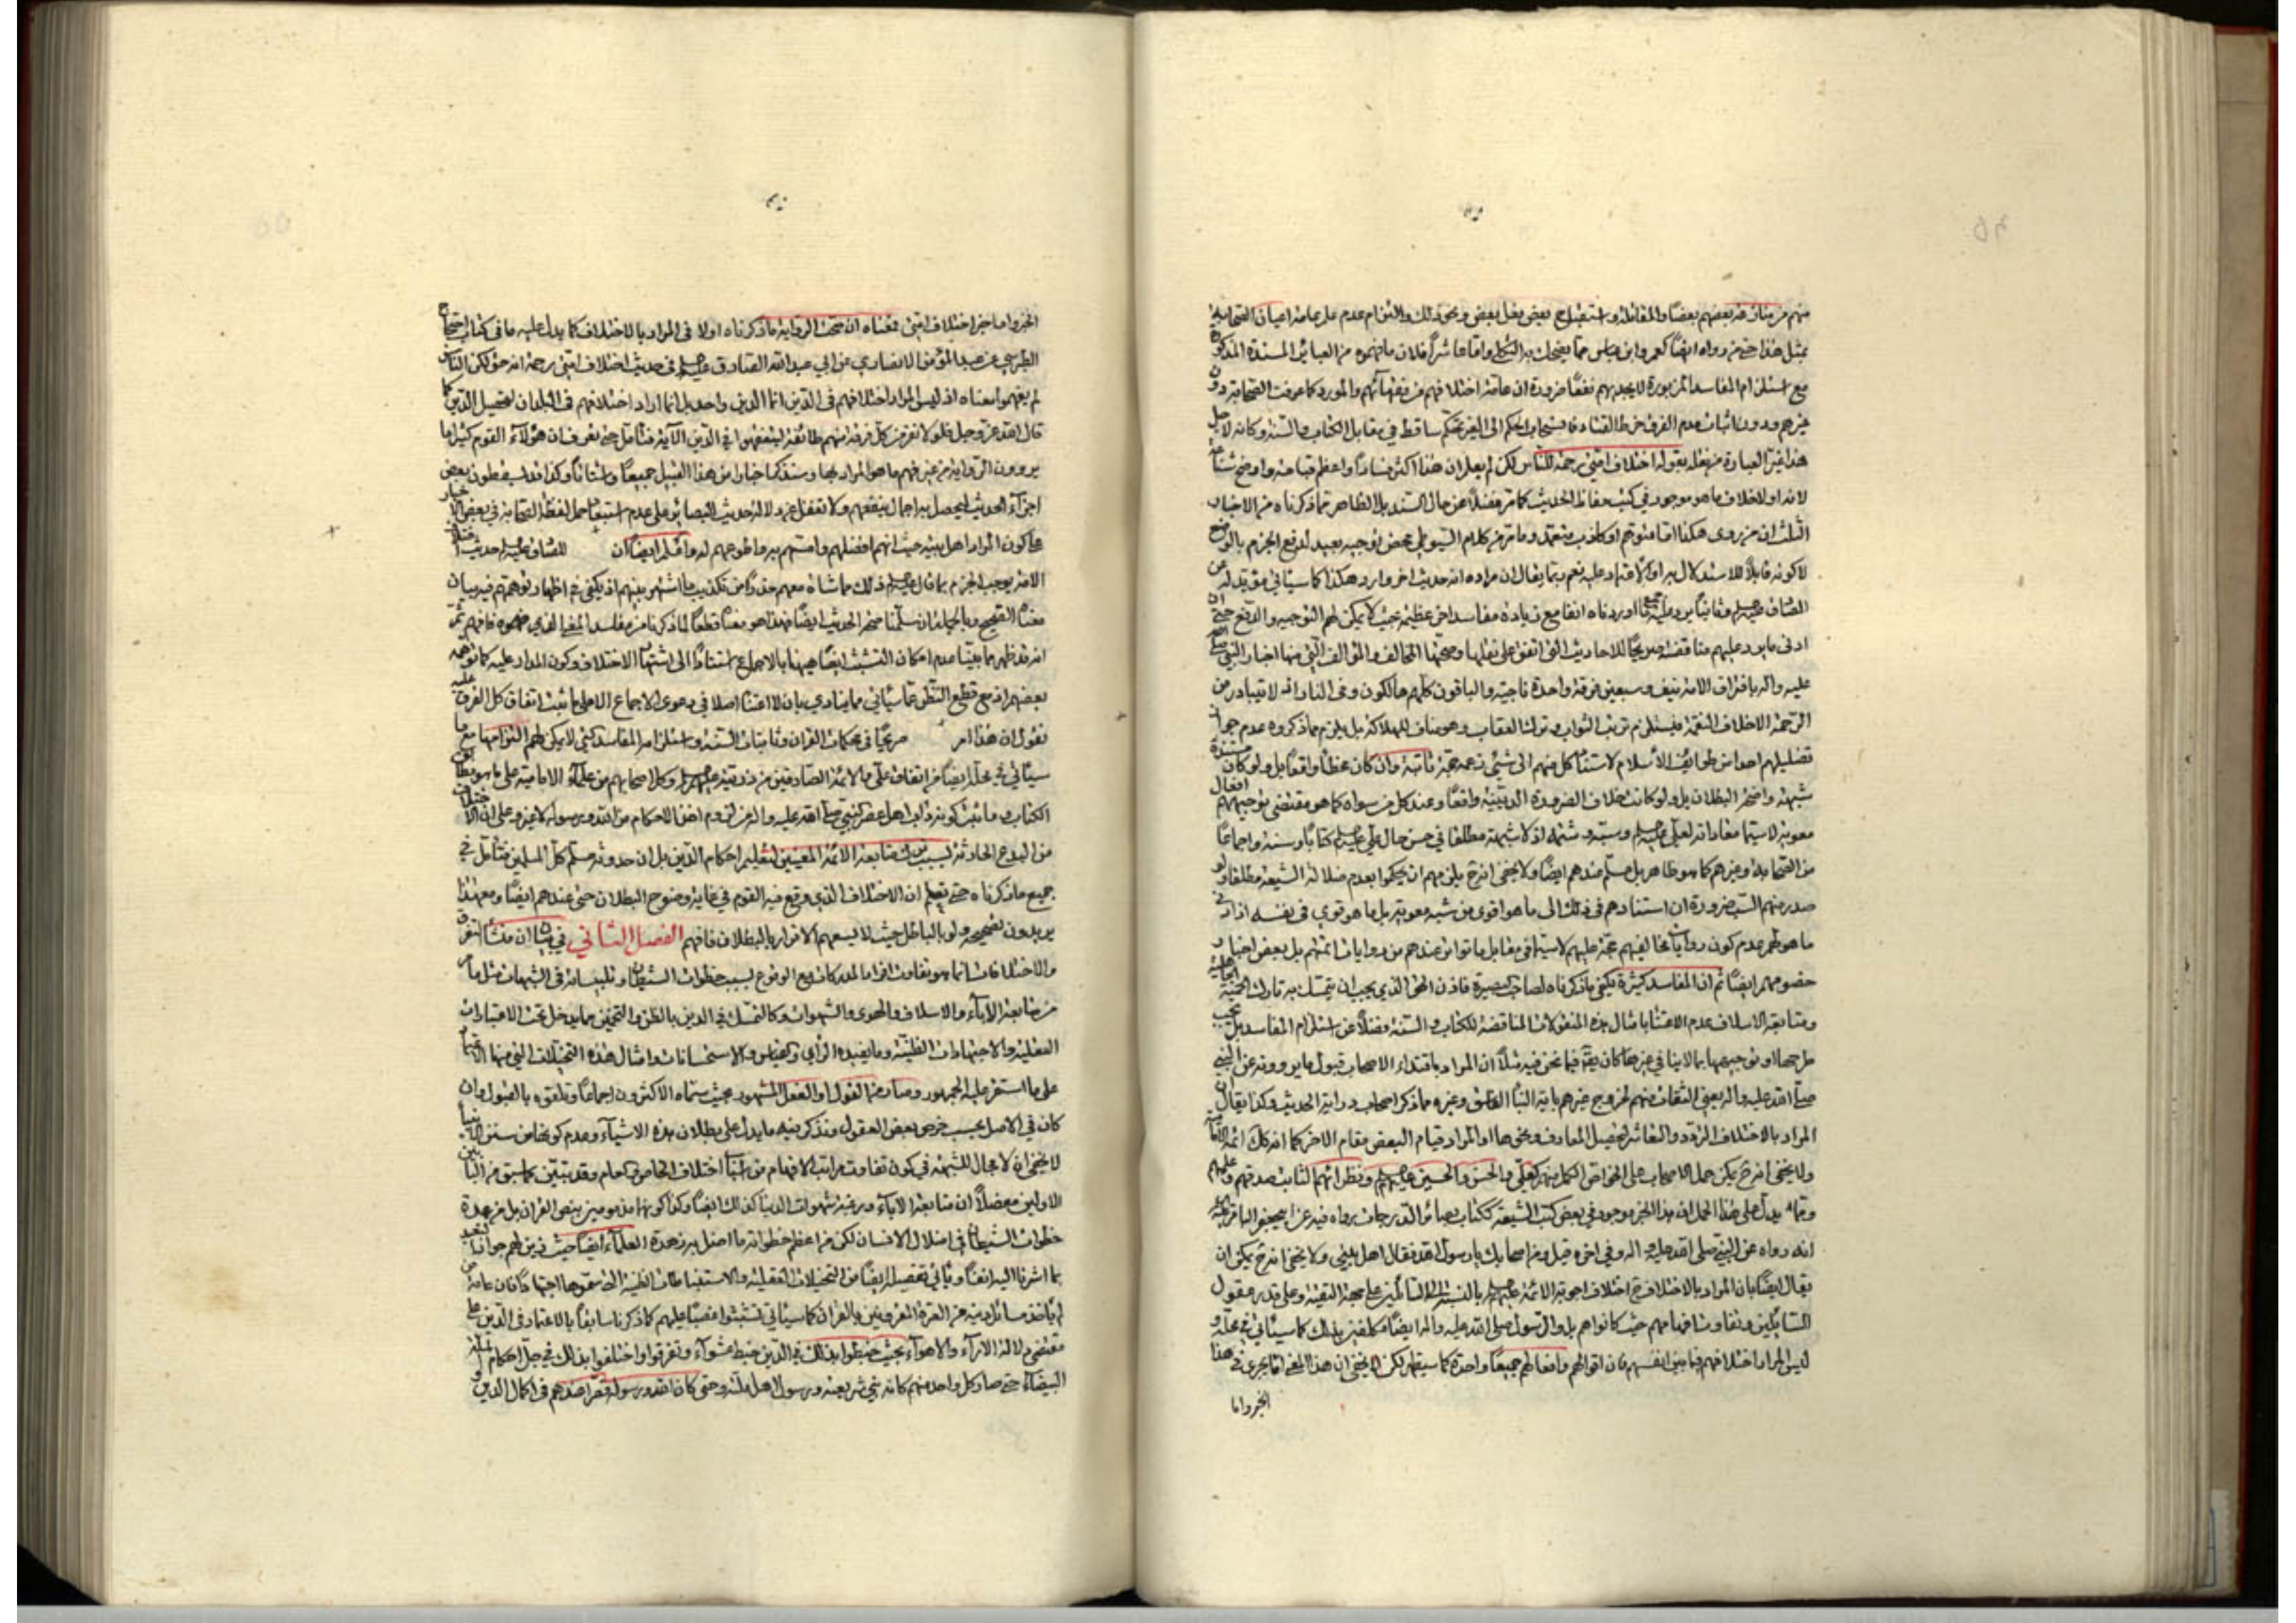 منهم من منازعة بعضهم بعضا والمقاتلة واستقباح بعض فعل بعض ونحو ذلك والتزام عدم علم عامة اعيان الصحابة
بمثل هذا حتى من رواه ايضا كعمر وابن عباس مما يضحك به الثكلى واما عاشرا فلان ما فهموه من العبائر المسندة المذكورة
مع استلزام المفاسد المزبورة لا يجديهم نفعا ضرورة ان عامة اختلافهم من فقهائهم والمورد كما عرفت الصحابة دون
غيرهم وبدون اثبات عدم الفرق خرط القتاد فانسحاب الحكم الى الغير تحكم ساقط في مقابل الكتاب والسنة وكانه لاجل
هذا غير العبارة من نقله بقوله اختلاف امتي رحمة للناس لكن لم يعلم ان هذا اكثر فسادا واعظم قباحة واوضح شناعة
لانه اولا خلاف ما هو موجود في كتب حفاظ الحديث كما مر فضلا عن حال السند بل الظاهر مما ذكرناه من الاخبار
الثلث ان من روى هكذا اما متوهم او كاذب متعمد وما مر من كلام السيوطي محض توجيه بعيد لدفع الجزم بالوضع
لا كونه قابلا للاستدلال به او الاعتماد عليه نعم ربما يقال ان مراده انه حديث اخر وارد هكذا كما سيأتي مؤيد له عن
الصادق عليه السلم وثانيا يرد عليه جميع ما اوردناه انفا مع زيادة مفاسد اخر عظيمة بحيث لا يمكن لهم التوجيه والدفع حتى ان
ادنى ما يرد عليهم مناقضته صريحا للاحاديث التي اتفق على نقلها وصحتها المخالف والمؤالف التي منها اخبار النبي صلى الله
عليه واله بافتراق الامة نيف وسبعين فرقة واحدة ناجية والباقون كلهم هالكون وفي النار اذ لا يتبادر من
الرحمة الا خلاف النقمة فيستلزم ترتب الثواب وترك العقاب وهو مناف للهلاكة بل يلزم مما ذكروه عدم جواز
تضليلهم احدا من طوائف الاسلام لاستناد كل منهم الى شيء زعمه حجة ثابتة وان كان خطأ واقعا بل ولو كان مستنده
شبهة واضحة البطلان بل ولو كانت خلاف الضرورة الدينية واقعا وعند كل من سواه كما هو مقتضى توجيههم افعال
معوية لا سيما معاداته لعلي عليه السلم وسبه وشتمه اذ لا شبهة مطلقا في حسن حال علي عليه السلم كتابا وسنة واجماعا
من الصحابة وغيرهم كما هو ظاهر بل مسلم عندهم ايضا ولا يخفى انه ح يلزمهم ان يحكموا بعدم ضلالة الشيعة مطلقا ولو
صدر منهم السب ضرورة ان استنادهم في ذلك الى ما هو اقوى من شبه معوية بل ما هو قوي في نفسه اذ ادنى
ما هو لهم عدم كون روايات مخالفيهم حجة عليهم لا سيما في مقابل ما تواتر عندهم من روايات ائمتهم بل بعض اخبار
خصومهم ايضا ثم ان المفاسد كثيرة يكفي ما ذكرناه لصاحب البصيرة فاذن الحق الذي يجب ان يتمسك به تارك الحمية الجاهلية
ومتابعة الاسلاف عدم الاعتناء بامثال هذه المنقولات المناقضة للكتاب والسنة فضلا عن استلزام المفاسد بل يجب
طرحها او توجيهها بما لا ينافي غيرها كان يقال فيما نحن فيه مثلا ان المراد باقتداء الاصحاب قبول ما يروونه عن النبي
صلى الله عليه واله يعني الثقات منهم لخروج غيرهم باية النبأ الفاسق وغيره مما ذكر اصحاب دراية الحديث وكذا يقال ان
المراد بالاختلاف التردد والتعاشر لتحصيل المعارف ونحوها او المراد قيام البعض مقام الاخر كما انه كان ائمة الامامية
ولا يخفى انه ح يمكن حمل الاصحاب على الخواص الكمل منهم كعلي والحسن والحسين عليهم السلم ونظرائهم الثابت صدقهم وعلمهم
ومما يدل على هذا الحمل ان هذا الخبر موجود في بعض كتب الشيعة ككتاب بصائر الدرجات رواه فيه عن ابي جعفر الباقر عليه السلم
انه رواه عن النبي صلى الله عليه واله وفي اخره قيل ومن اصحابك يا رسول الله فقال اهل بيتي ولا يخفى انه ح يمكن ان
يقال ايضا بان المراد بالاختلاف ح اختلاف اجوبة الائمة عليهم السلم بالنسبة الى السائلين على جهة التقية وعلى قدر عقول
السائلين وتفاوت افهامهم حيث كانوا هم بل والرسول صلى الله عليه واله ايضا مكلفين بذلك كما سيأتي في محله و
ليس المراد اختلافهم فيما بين انفسهم فان اقوالهم وافعالهم جميعا واحدة كما سيظهر لكن لا يخفى ان هذا المعنى انما يجري في هذا
الخبر واما
الخبر واما خبر اختلاف امتي فمعناه ان صحت الرواية ما ذكرناه اولا في المراد بالاختلاف كما يدل عليه ما في كتاب احتجاج
الطبرسي عن عبد المؤمن الانصاري عن ابي عبد الله الصادق عليه السلم في حديث اختلاف امتي رحمة انه حق لكن الناس
لم يفهموا معناه اذ ليس المراد اختلافهم في الدين انما الدين واحد بل انما اراد اختلافهم في البلدان لتحصيل الدين كما
قال الله عز وجل فلولا نفر من كل فرقة منهم طائفة ليتفقهوا في الدين الآية فتأمل حتى تعرف ان هؤلاء القوم كثيرا ما
يروون الرواية من غير فهم ما هو المراد بها وسنذكر اخبارا من هذا القبيل جميعا واشتاتا وكذا قد يسقطون بعض
اجزاء الحديث ليحصل به اجمال ينفعهم ولا تغفل عن دلالة حديث البصائر على عدم استبعاد حمل لفظ الصحابة في بعض الاخبار
على كون المراد اهل بيته حيث انهم افضلهم وامسهم به واطوعهم له واقل ايضا ان للصادق عليه السلم حديث اختلاف
الامة يوجب الجزم بما قال عليه السلم ذلك مماشاة معهم حذرا من تكذيب ما اشتهر بينهم اذ يكفي في اظهار توهمهم فيه بيان
معناه الصحيح وبالجملة ان سلمنا صحة الحديث ايضا فهذا هو معناه قطعا لما ذكرنا من مفاسد المعنى الذي فهموه فافهم ثم
انه قد ظهر مما بينا عدم امكان التشبث ايضا هيهنا بالاجماع استنادا الى اشتهار الاختلاف وكون المدار عليه كما توهمه
بعضهم اذ مع قطع النظر عما سيأتي مما ينادي بان لا اعتناء اصلا في دعوى الاجماع الا على ما ثبت اتفاق كل الفرق عليه
نقول ان هذا امر صريحا في محكمات القرآن وثابتات السنة واستلزام المفاسد كيف لا يمكن لهم التزامها مع ما
سيأتي في محله ايضا من اتفاق علي والائمة الصادقين من ذريته عليهم السلم وكل اصحابهم من علماء الامامية على ما هو مطابق
الكتاب وما ثبت كونه داب اهل عصر النبي صلى الله عليه واله من لزوم اخذ الاحكام من الله ورسوله لا غير وعلى ان الاختلاف
من البدع الحادثة لسبب ترك متابعة الائمة المعينين لتعليم احكام الدين بل ان حدوثه مسلم كل المسلمين فتأمل في
جميع ما ذكرناه حتى تعلم ان الاختلاف الذي وقع فيه القوم في غاية وضوح البطلان حتى عندهم ايضا ومع هذا
يريدون تصحيحه ولو بالباطل حيث لا يسعهم الاقرار بالبطلان فافهم الفصل الثاني في بيان ان منشأ التفرق
والاختلافات انما هو تفاوت افهام المدركات مع الوقوع بسبب خطوات الشيطان وتلبيساته في الشبهات مثل ما مر
من متابعة الآباء والاسلاف والهوى والشهوات وكالتمسك في الدين بالظن والتخمين مما يدخل تحت الاعتبارات
العقلية والاجتهادات الظنية وما يفيده الرأي والقياس والاستحسانات وامثال هذه التخيلات التي منها الاعتماد
على ما استقر عليه الجمهور وصار من القول او الفعل المشهور بحيث سماه الاكثرون اجماعا وتلقوه بالقبول وان
كان في الاصل بحسب خرص بعض العقول ونذكر فيه ما يدل على بطلان هذه الاشياء وعدم كونها من سنن الانبياء
لا يخفى ان لا مجال للشبهة في كون تفاوت مراتب الافهام من اسباب اختلاف الخاص والعام وقد تبين مما سبق من البابين
الاولين مفصلا ان متابعة الآباء ورغبة شهوات الدنيا كذلك ايضا وكذا كونها مذمومين بنص القرآن بل من عمدة
خطوات الشيطان في اضلال الانسان لكن من اعظم خطواته ما اضل به زهدة العلماء ايضا حيث زين لهم جواز التعبد
بما اشرنا اليه انفا ويأتي تفصيله ايضا من التخيلات العقلية والاستنباطات الظنية التي سموها اجتهادا فان عامة من
لم يأخذ مسائل دينه عن العترة المقرونين بالقرآن كما سيأتي تشبثوا غصبا عليهم كما ذكرنا سابقا بالاعتماد في الدين على
مقتضى دلالة الآراء والاهواء بحيث خبطوا بذلك في الدين خبط عشواء وتفرقوا واختلفوا بذلك في جل احكام الملة
البيضاء حتى صار كل واحد منهم كانه نبي شريعته ورسول لاهل ملته وحتى كان الله ورسوله قصرا عندهم في اكمال الدين و